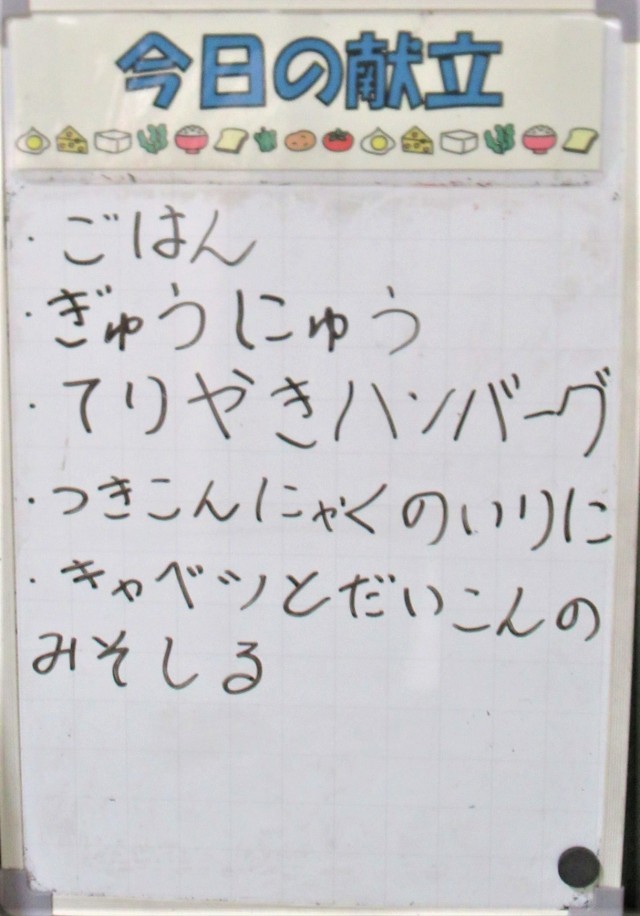 今日の献立
・ごはん
・ぎゅうにゅう
・てりやきハンバーグ
・つきこんにゃくのいりに
・キャベツとだいこんの
みそしる